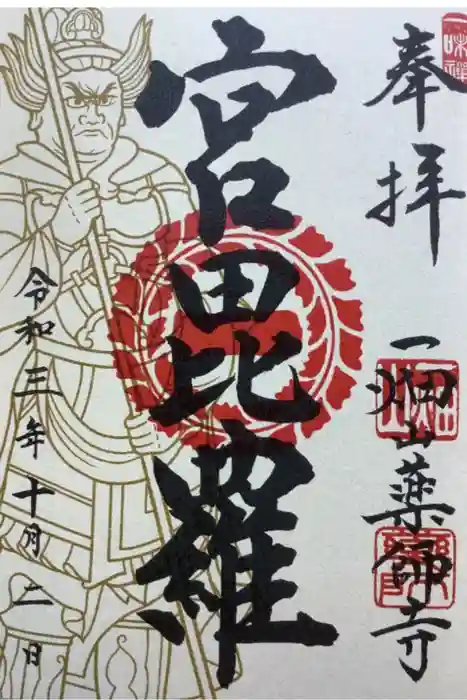 奉拝
一畑山薬師寺
宮毘羅
令和三年十月二日